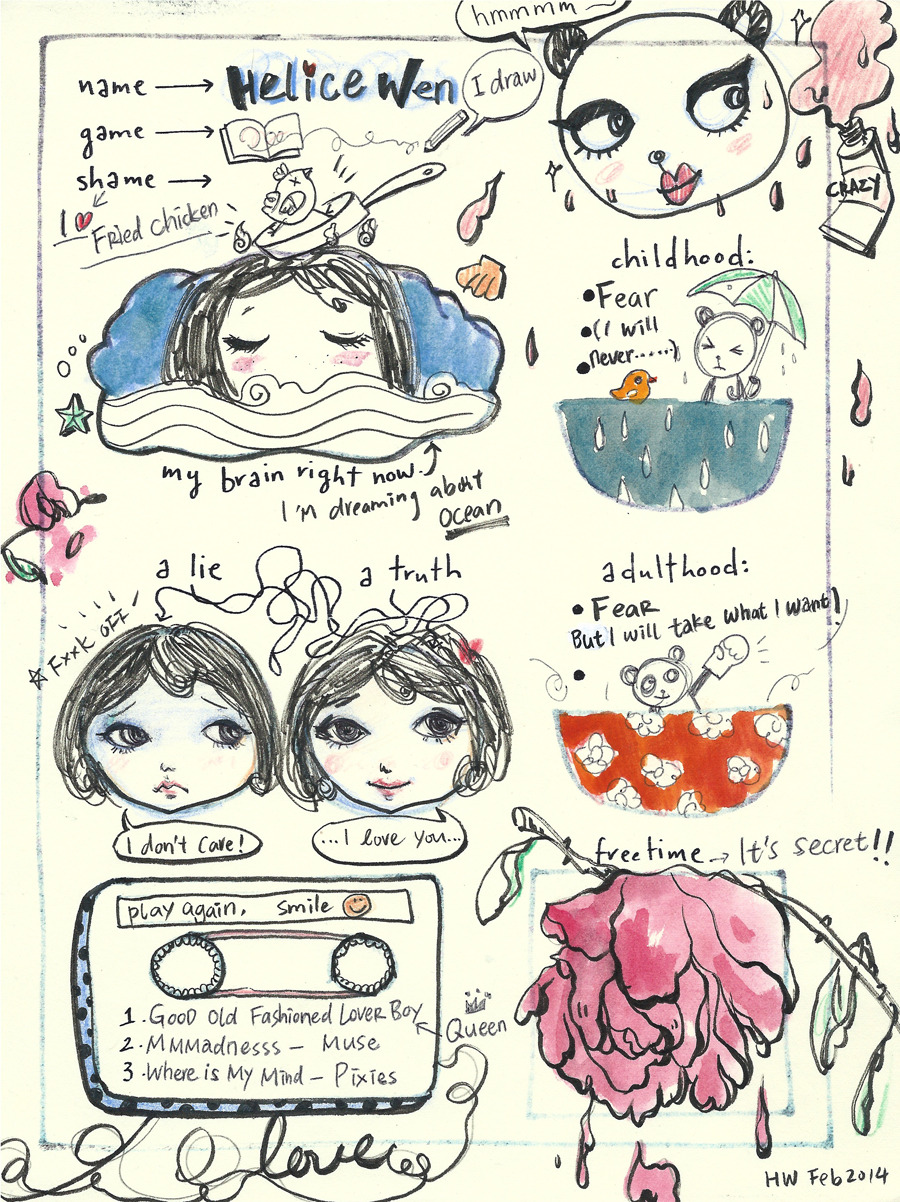 hmmmm ~
name → Helice Wen
I draw
game →
shame →
I ♥
Fried Chicken
CRAZY
childhood:
• Fear
• (I will
• never......)
my brain right now.
I'm dreaming about
ocean
a lie
a truth
☆ Fxxk OFF
adulthood:
• Fear
But I will take what I want)
•
I don't care!
...I love you...
freetime → It's secret!!
play again, smile
1. Good Old Fashioned Lover Boy
Queen
2. MMMadnesss - Muse
3. Where is My Mind - Pixies
love
HW Feb 2014